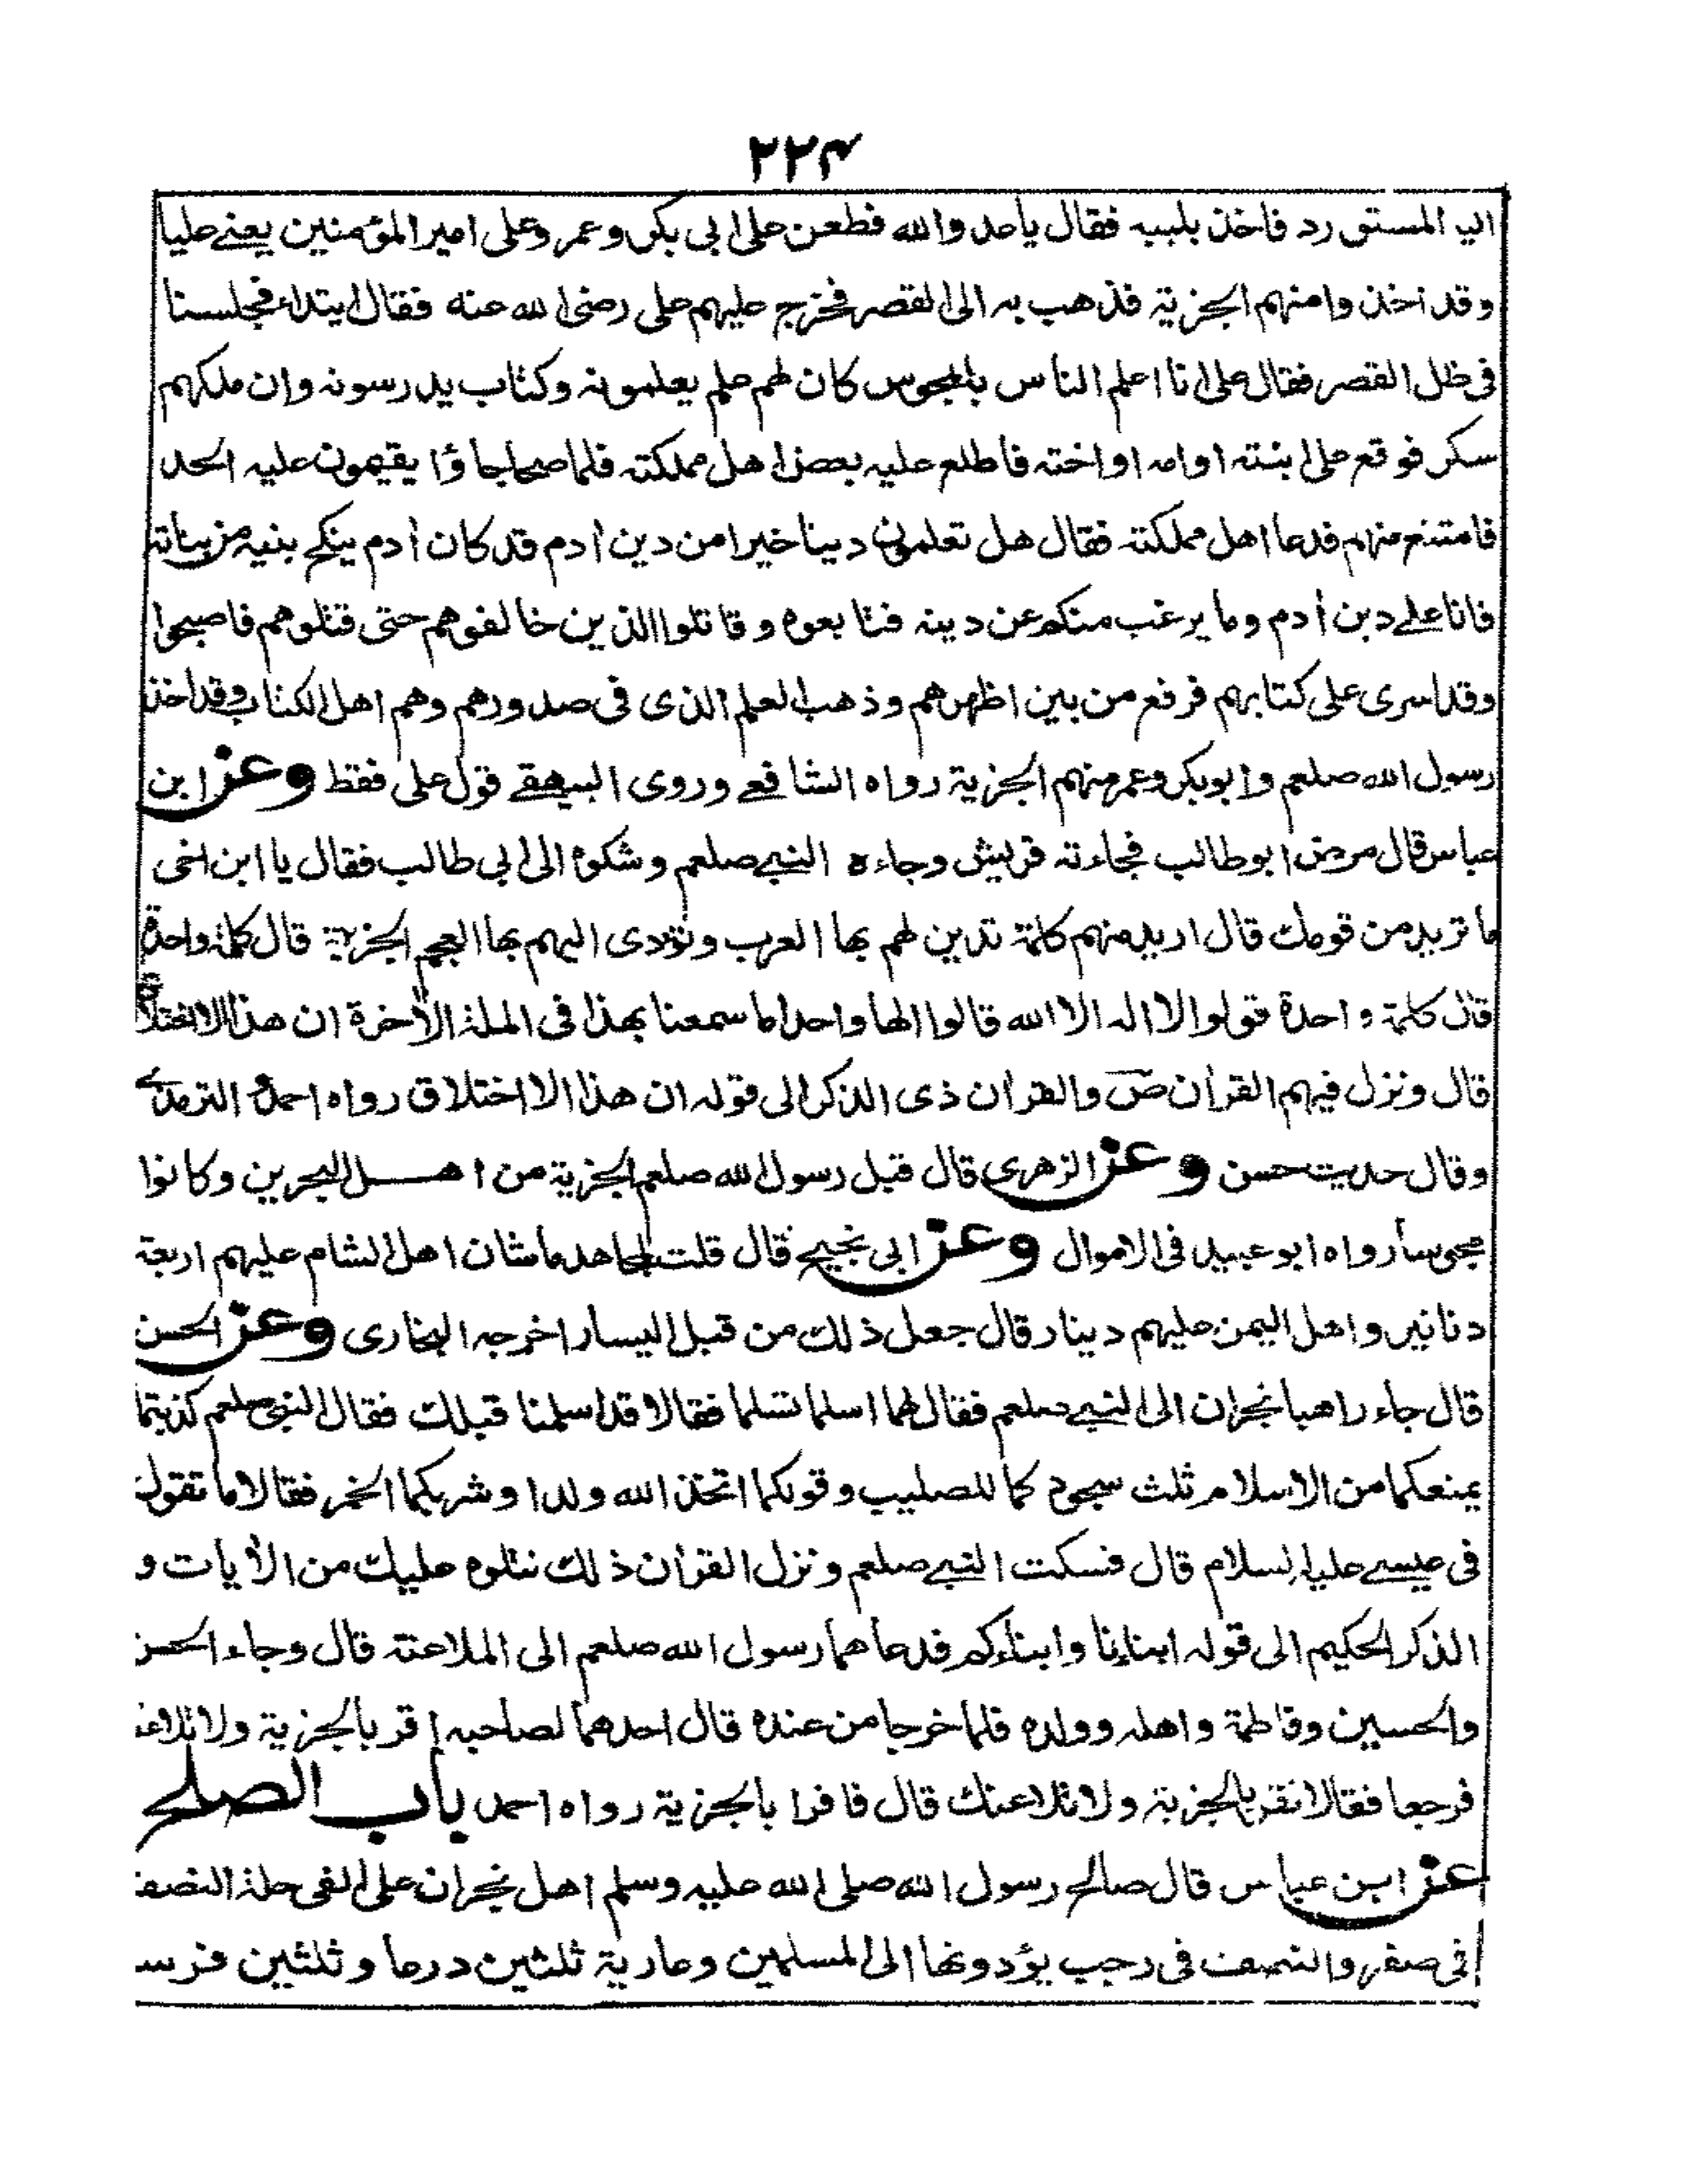 ٢٢٤
اليه المستورد فاخذ بلببه فقال يا عدو الله فطعن على ابى بكر وعمر وعلى امير المؤمنين يعنے عليا
وقد اخذوا منهم الجزية فذهب به الى القصر فخرج عليهم على رضى الله عنه فقال ايتداء فجلسنا
فى ظل القصر فقال على انا اعلم الناس بالمجوس كان لهم علم يعلمونه وكتاب يدرسونه وان ملكهم
سكر فوقع على ابنته او امه او اخته فاطلع عليه بعض اهل مملكته فلما صحا جاؤا يقيمون عليه الحد
فامتنع منهم فدعا اهل مملكته فقال هل تعلمون دينا خيرا من دين أدم قد كان أدم ينكح بنيه من بناته
فانا على دين أدم وما يرغب منكم عن دينه فتابعوه وقاتلوا الذين خالفوهم حتى قتلوهم فاصبحوا
وقد اسرى على كتابهم فرفع من بين اظهرهم وذهب العلم الذى فى صدورهم وهم اهل الكتاب وقد اخذ
رسول الله صلعم وابوبكر وعمر منهم الجزية رواه الشافعے وروى البيهقے قول على فقط وعن ابن
عباس قال مرض ابو طالب فجاءته قريش وجاءه النبے صلعم وشكوه الى ابى طالب فقال يا ابن اخى
ما تريد من قومك قال اريد منهم كلمة تدين لهم بها العرب وتؤدى اليهم بها العجم الجزية قال كلمة واحدة
قال كلمة واحدة قولوا لا اله الا الله قالوا الها واحدا ما سمعنا بهذا فى الملة الأخرة ان هذا الا اختلاق
قال ونزل فيهم القرأن ص والقرأن ذى الذكر الى قوله ان هذا الا اختلاق رواه احمد والترمذے
وقال حديث حسن وعن الزهرى قال قبل رسول الله صلعم الجزية من اهل البحرين وكانوا
مجوسا رواه ابو عبيد فى الاموال وعن ابى نجيح قال قلت لمجاهد ما شان اهل الشام عليهم اربعة
دنانير واهل اليمن عليهم دينار قال جعل ذلك من قبل اليسار اخرجه البخارى وعن الحسن
قال جاء راهبا نجران الى النبے صلعم فقال لهما اسلما تسلما فقالا قد اسلمنا قبلك فقال النبى صلعم كذبتما
يمنعكما من الاسلام ثلث سجودكما للصليب وقولكما اتخذ الله ولدا وشربكما الخمر فقالا ما تقول
فى عيسے عليه السلام قال فسكت النبے صلعم ونزل القرأن ذلك نتلوه عليك من الأيات و
الذكر الحكيم الى قوله ابناءنا وابناءكم فدعاهما رسول الله صلعم الى الملاعنة قال وجاء الحسن
والحسين وفاطمة واهله وولده فلما خرجا من عنده قال احدهما لصاحبه اقر بالجزية ولا تلاعنه
فرجعا فقالا نقر بالجزية ولا نلاعنك قال فاقرا بالجزية رواه احمد باب الصلح
عن ابن عباس قال صالح رسول الله صلى الله عليه وسلم اهل نجران على الفى حلة النصف
فى صفر والنصف فى رجب يؤدونها الى المسلمين وعارية ثلثين درعا وثلثين فرسا